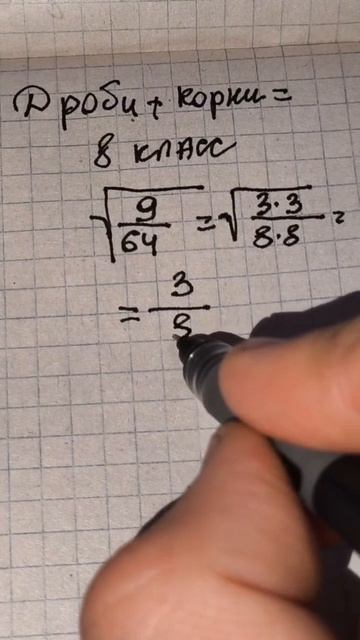 Дроби + корни =
8 класс
√9/64 = √3·3/8·8 =
= 3/8